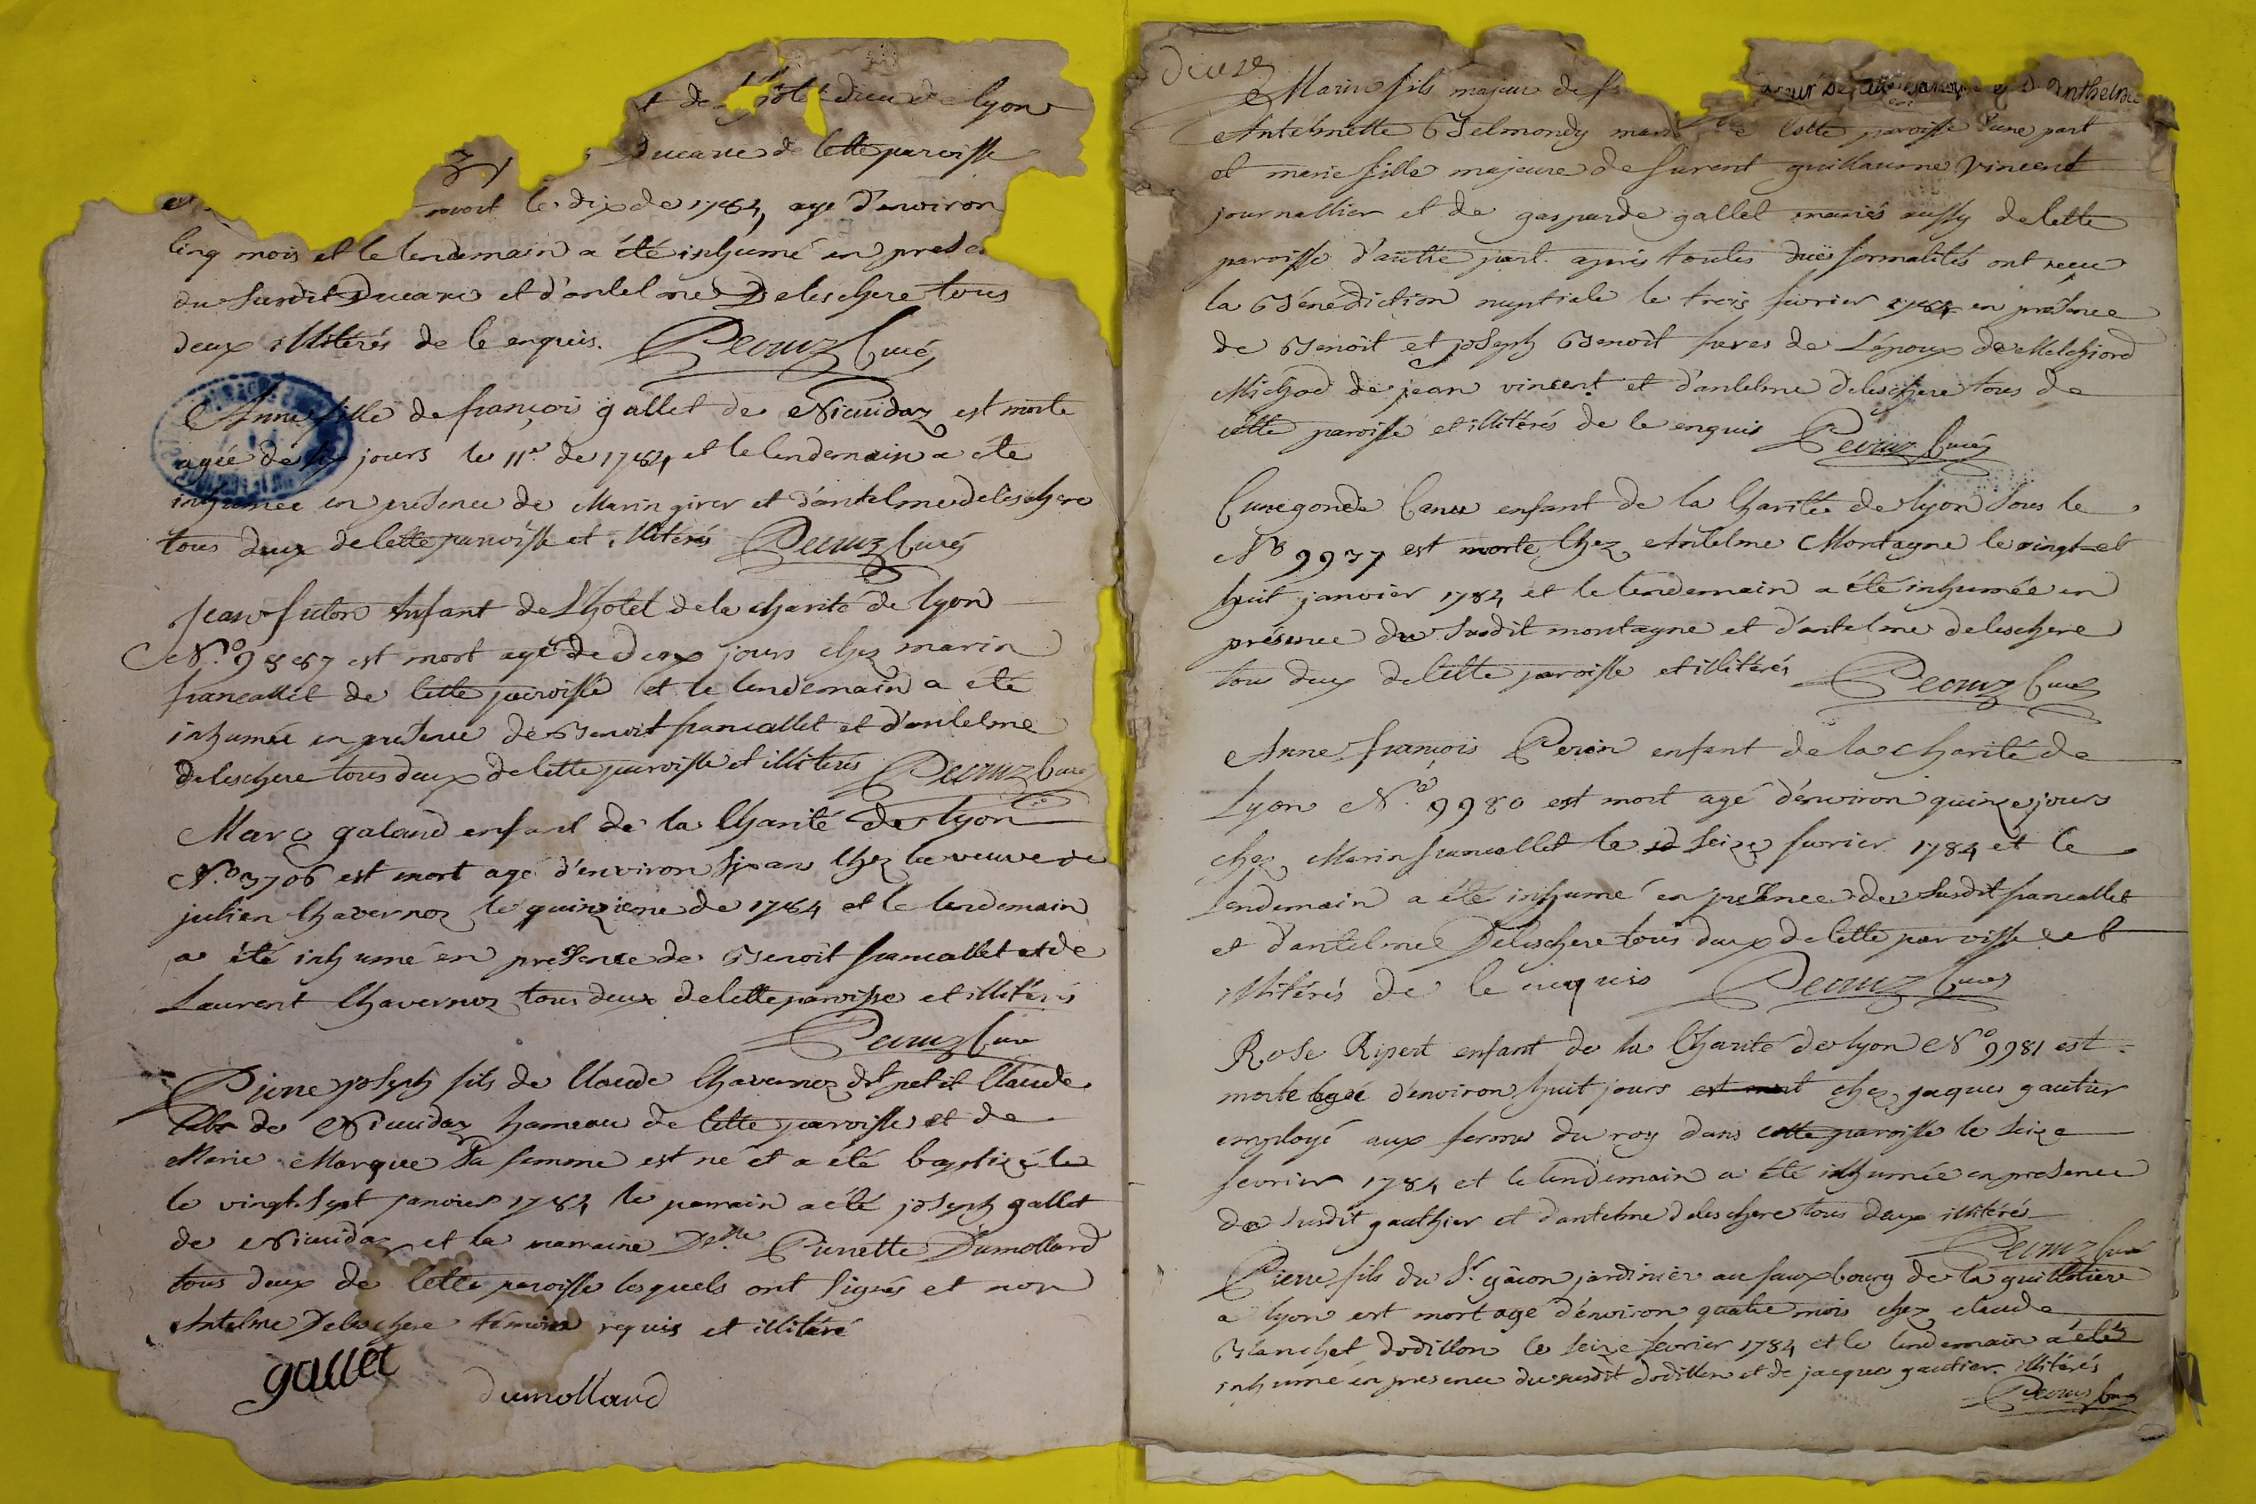 de lyon
Ducarre de cette paroisse
le dix de 1784, agé d'environ
cinq mois et le lendemain a été inhumé en
du susdit Ducarre et d'antelme Deleschere tous
deux illitérés de ce enquis. Pecruz Curé
Anne fille de françois gallet de est morte
agée de jours le 11e. de 1784 et le lendemain a éte
inhumée en présence de Marin girer et d'antelme deleschere
tous deux de cette paroisse et illitérés Pecruz Curé
Jean futon Enfant de L'hotel de la charité de lyon
N.o 9867 est mort agé de deux jours chez marin
francallet de cette paroisse et le lendemain a été
inhumée en présence de Benoit francallet et d'antelme
deleschere tous deux de cette paroisse et illitérés Pecruz Curé
Marc galand enfant de la Charité de lyon
N.o 3706 est mort agé d'environ six ans Chez la veuve de
julien Chavernoz le quinzieme de 1784 et le lendemain
a été inhumé en présence de Benoit francallet et de
Laurent Chavernoz tous deux de cette paroisse et illitérés
Pecruz Curé
Pierre joseph fils de Claude Chavernoz dit petit Claude
de hameau de cette paroisse et de
Marie Marque Sa femme est né et a été baptizé le
le vingt sept janvier 1784 le parrain a été joseph gallet
de et la marraine Dlle Pierrette Dumollard
tous deux de cette paroisse lesquels ont signés et non
Antelme Deleschere témoin requis et illitéré
gallet
dumollard
Marin fils majeur de
Antelmette Belmondy de Cette paroisse d'une part
et marie fille majeure de furent guillaume vincent
journallier et de gasparde gallet mariés aussy de cette
paroisse d'autre part. apres toutes duës formalités ont reçu
la Bénédiction nuptiale le trois février 1784 en présence
de Benoit et joseph Benoit freres de L'époux de Melchiord
Michod de jean vincent et d'antelme deleschere tous de
cette paroisse et illitérés de ce enquis Pecruz Curé
Cunegonde enfant de la Charité de lyon sous le
No 9937 est morte Chez Antelme Montagne le vingt et
huit janvier 1784 et le lendemain a été inhumée en
présence du susdit montagne et d'antelme deleschere
tous deux de cette paroisse et illitérés Pecruz Curé
Anne françois Perin enfant de la charité de
Lyon N.o 9980 est mort agé d'environ quinze jours
chez Marin francallet le seize fevrier 1784 et le
lendemain a été inhumé en présence de susdit francallet
et d'antelme Deleschere tous deux de cette paroisse et
illitérés de ce enquis Pecruz Curé
Rose Ripert enfant de la Charité de lyon No 9981 est
morte agée d'environ huit jours est mort chez jaques gautier
employé aux fermes du roy dans cette paroisse le seize
fevrier 1784 et le lendemain a été inhumée en présence
de susdit gauthier et d'antelme deleschere tous deux illitérés
Pecruz Curé
Pierre fils du Sr. gâcon jardinier au fauxbourg de la guillotiere
a lyon est mort agé d'environ quatre mois chez claude
Blanchet dodillon le seize fevrier 1784 et le lendemain a été
inhumé en presence du susdit dodillon et de jacques gautier illitérés
Pecruz Curé